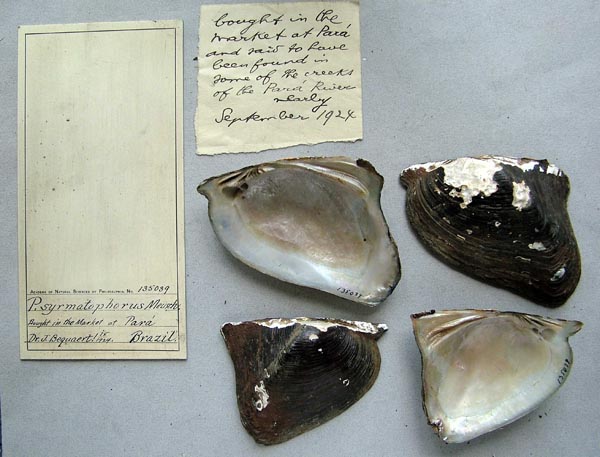 bought in the
market at Pará
and said to have
been found in
some of the creeks
of the Pará River
nearly
September 1924
Academy of Natural Sciences of Philadelphia, No. 135089
P. syrmatophorus Meusch.
Bought in the Market at Para
Dr. J. Bequaert! Brazil.